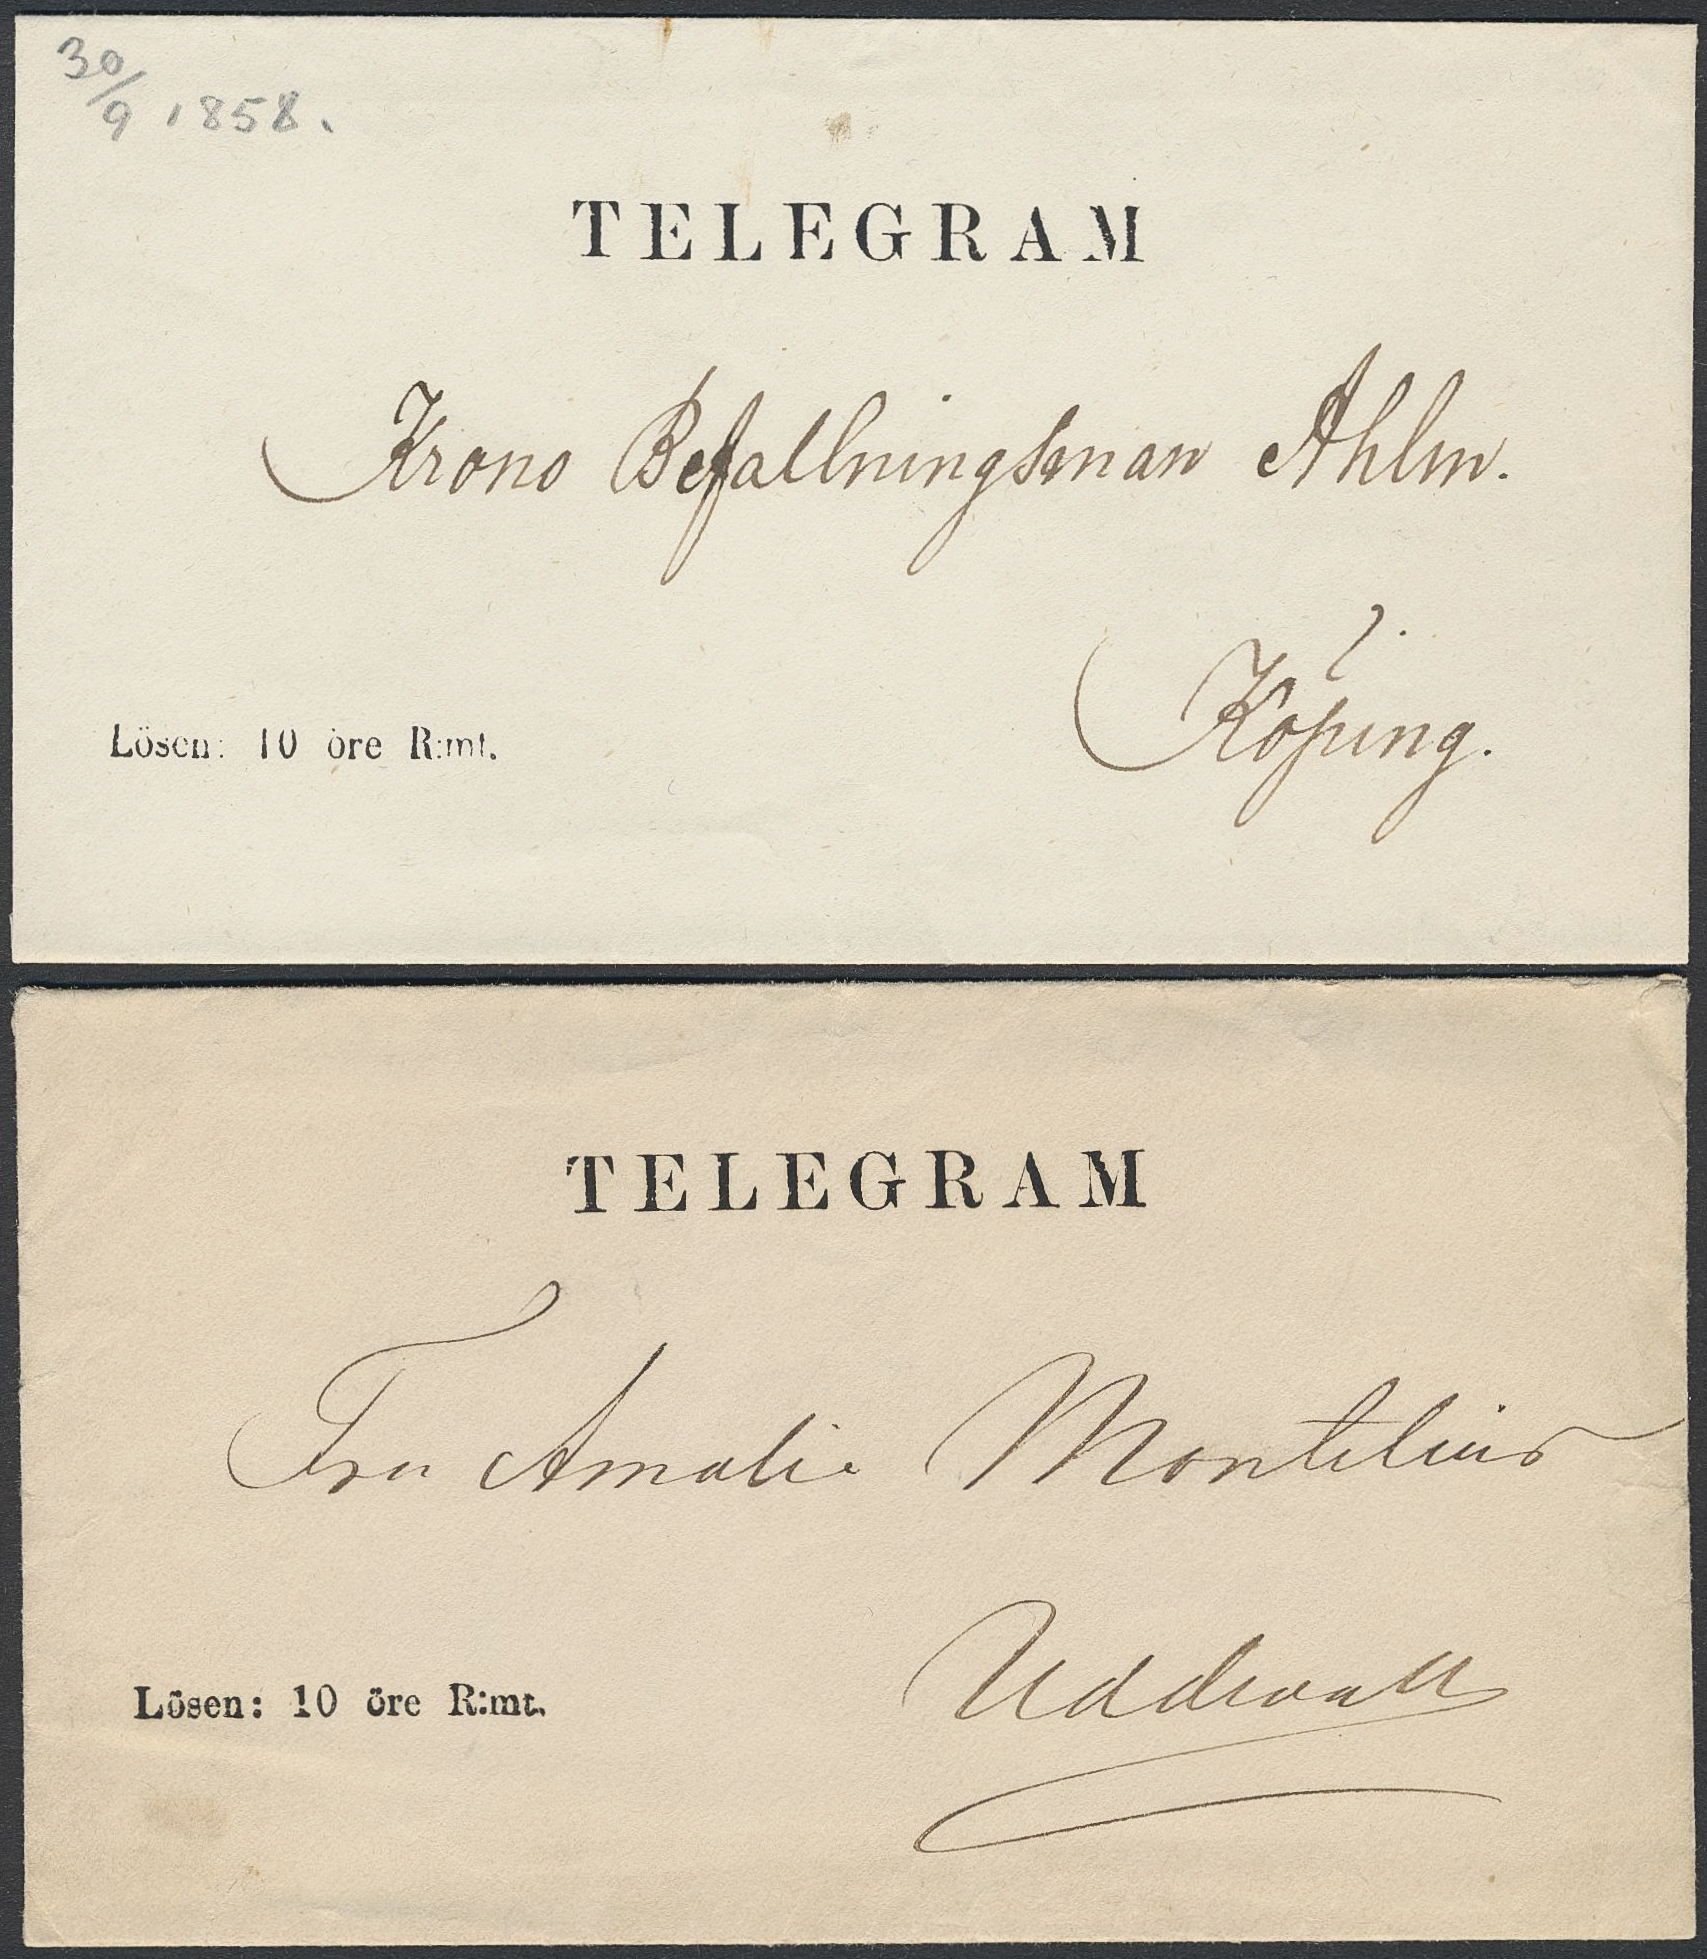 30/9 1858.
TELEGRAM
Krono Befallningsman Ahlm.
Köping.
Lösen: 10 öre R:mt.
TELEGRAM
Fru Amalia Montelius
Uddevalla
Lösen: 10 öre R:mt.